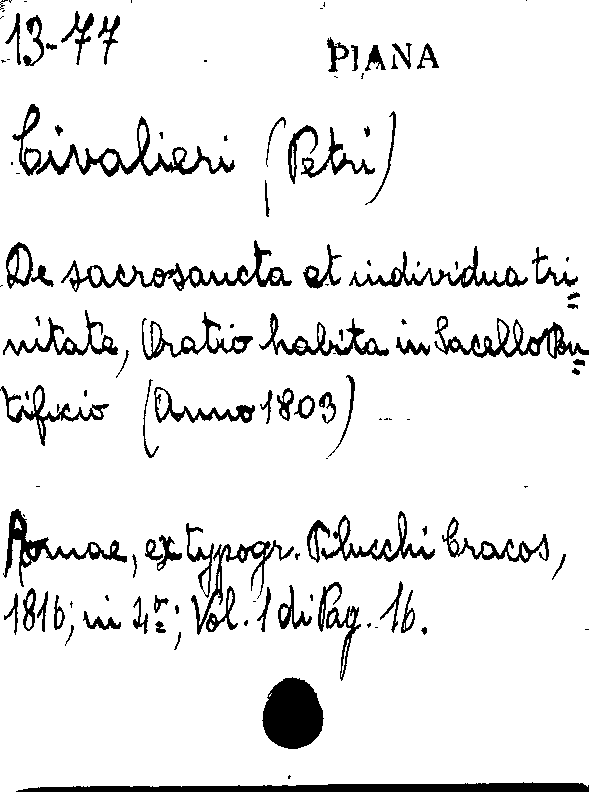 13-77
PIANA
Civalieri (Petri)
De sacrosancta et individua tri=
nitate, Oratio habita in Sacello Pon=
tificio (Anno 1803)
Romae, ex typogr. Pilucchi Cracas,
1816; in 4º; Vol. 1 di Pag. 16.